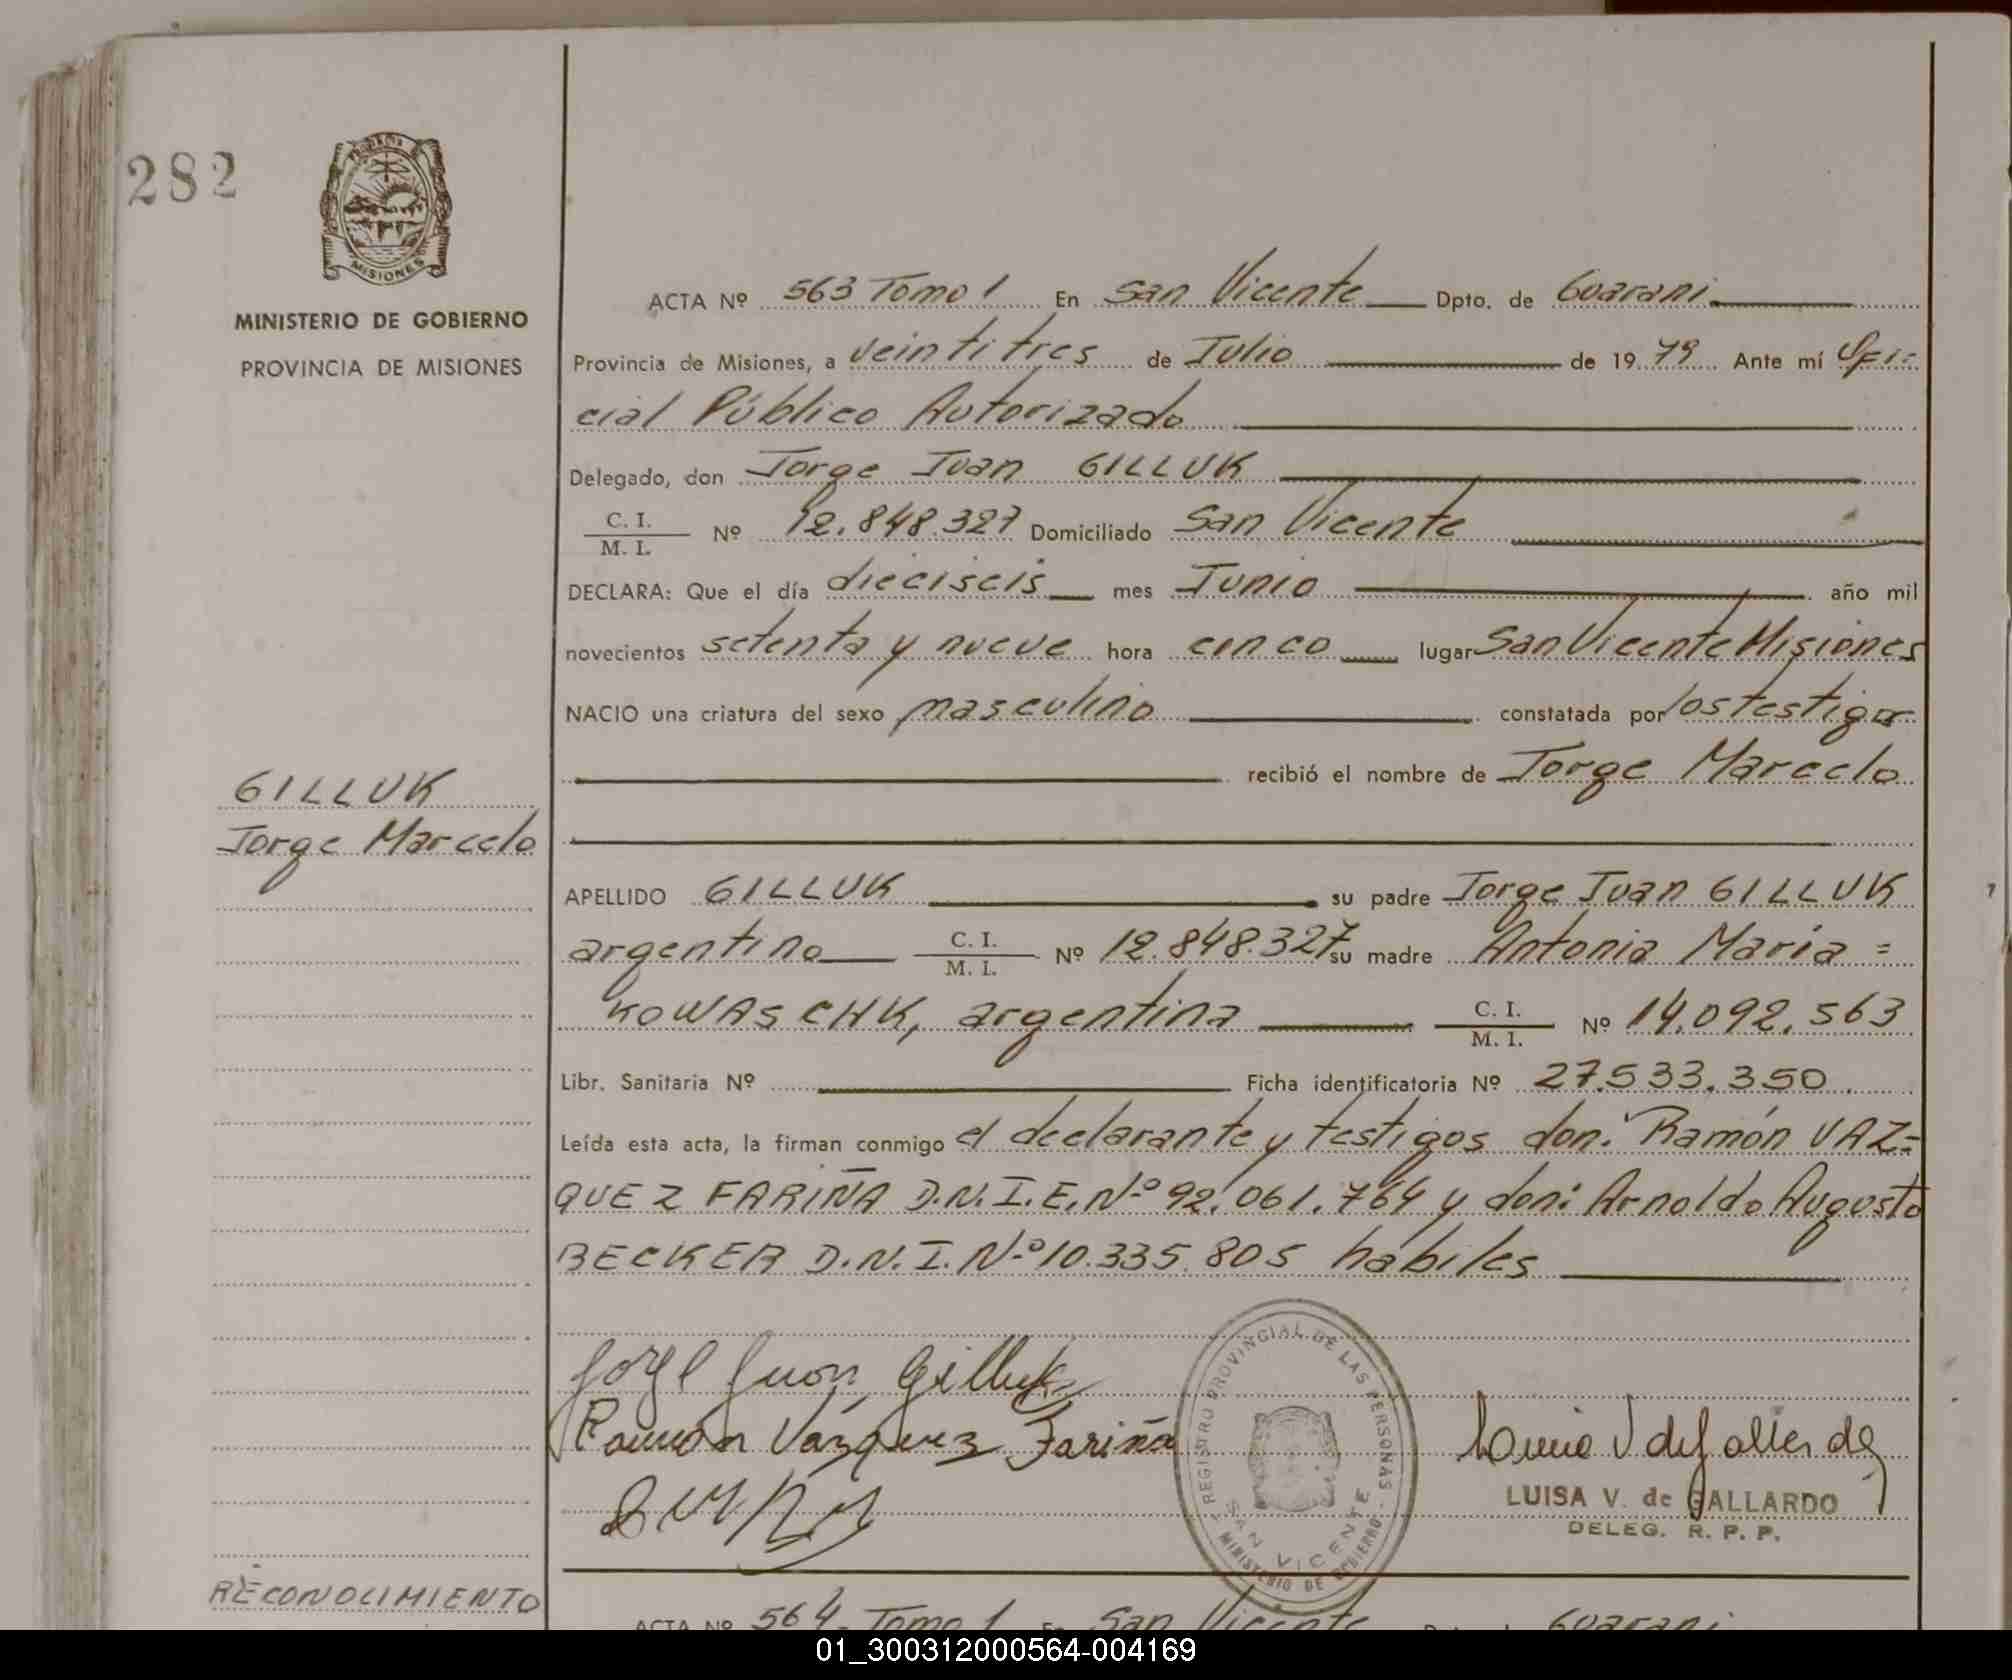 282
PROVINCIA DE
MISIONES
MINISTERIO DE GOBIERNO
PROVINCIA DE MISIONES
ACTA Nº 563 Tomo 1 En San Vicente Dpto. de Guarani
Provincia de Misiones, a veintitres de Julio de 1979 Ante mí Ofi=
cial Público Autorizado
Delegado, don Jorge Juan GILLUK
C. I.
M. I. Nº 12.848.327 Domiciliado San Vicente
DECLARA: Que el día dieciseis mes Junio año mil
novecientos setenta y nueve hora cinco lugar San Vicente Misiones
NACIO una criatura del sexo masculino constatada por los testigos
recibió el nombre de Jorge Marcelo
GILLUK
Jorge Marcelo
APELLIDO GILLUK su padre Jorge Juan GILLUK
argentino C. I.
M. I. Nº 12.848.327 su madre Antonia María =
KOWASCHK, argentina C. I.
M. I. Nº 14.092.563
Libr. Sanitaria Nº Ficha identificatoria Nº 27.533.350.
Leída esta acta, la firman conmigo el declarante y testigos don: Ramón VAZ=
QUEZ FARIÑA D.N.I.E. Nº 92.061.764 y don: Arnoldo Augusto
BECKER D.N.I. Nº 10.335.805 habiles
Jorge Juan Gilluk
Ramón Vázquez Fariña
REGISTRO PROVINCIAL DE LAS PERSONAS
SAN VICENTE
MINISTERIO DE GOBIERNO
Luisa V de Gallardo
LUISA V. de GALLARDO
DELEG. R. P. P.
RECONOCIMIENTO
ACTA Nº 564 Tomo 1 En San Vicente Guarani
01_300312000564-004169